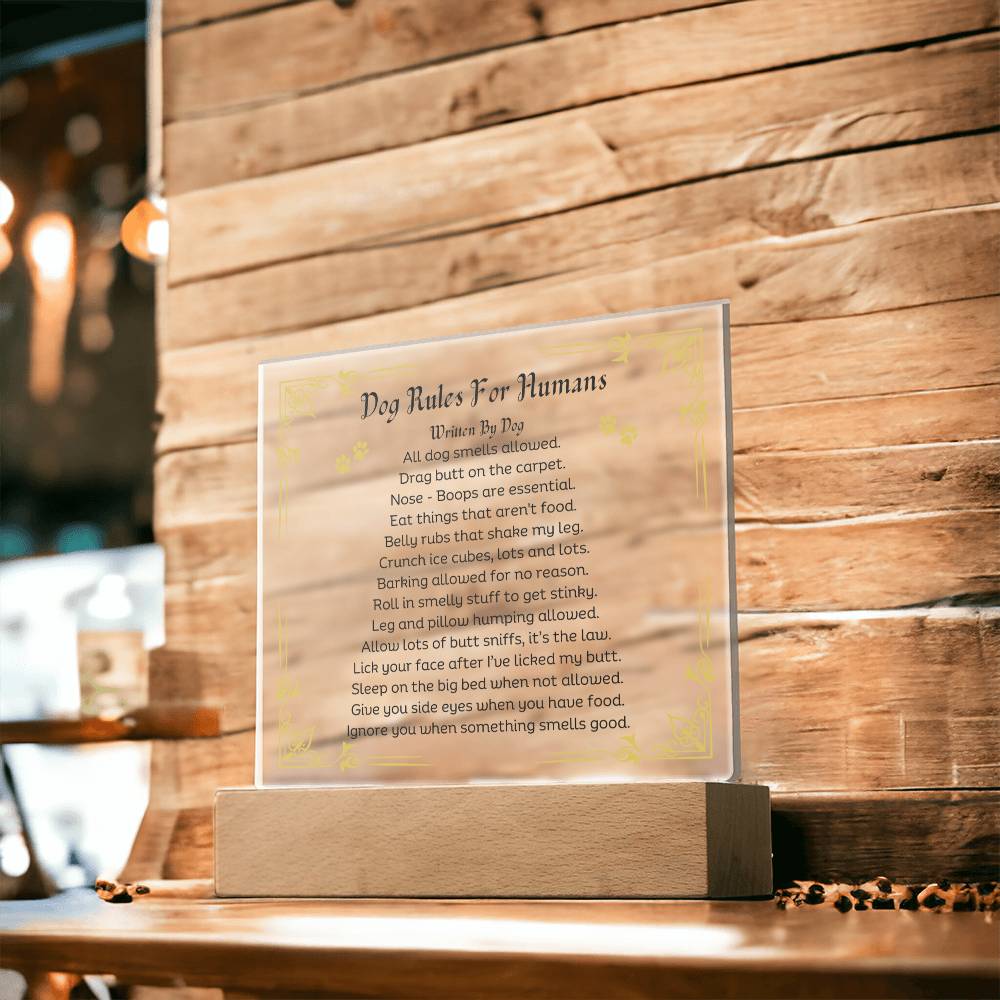 Dog Rules For Humans
Written By Dog
All dog smells allowed.
Drag butt on the carpet.
Nose - Boops are essential.
Eat things that aren't food.
Belly rubs that shake my leg.
Crunch ice cubes, lots and lots.
Barking allowed for no reason.
Roll in smelly stuff to get stinky.
Leg and pillow humping allowed.
Allow lots of butt sniffs, it's the law.
Lick your face after I've licked my butt.
Sleep on the big bed when not allowed.
Give you side eyes when you have food.
Ignore you when something smells good.